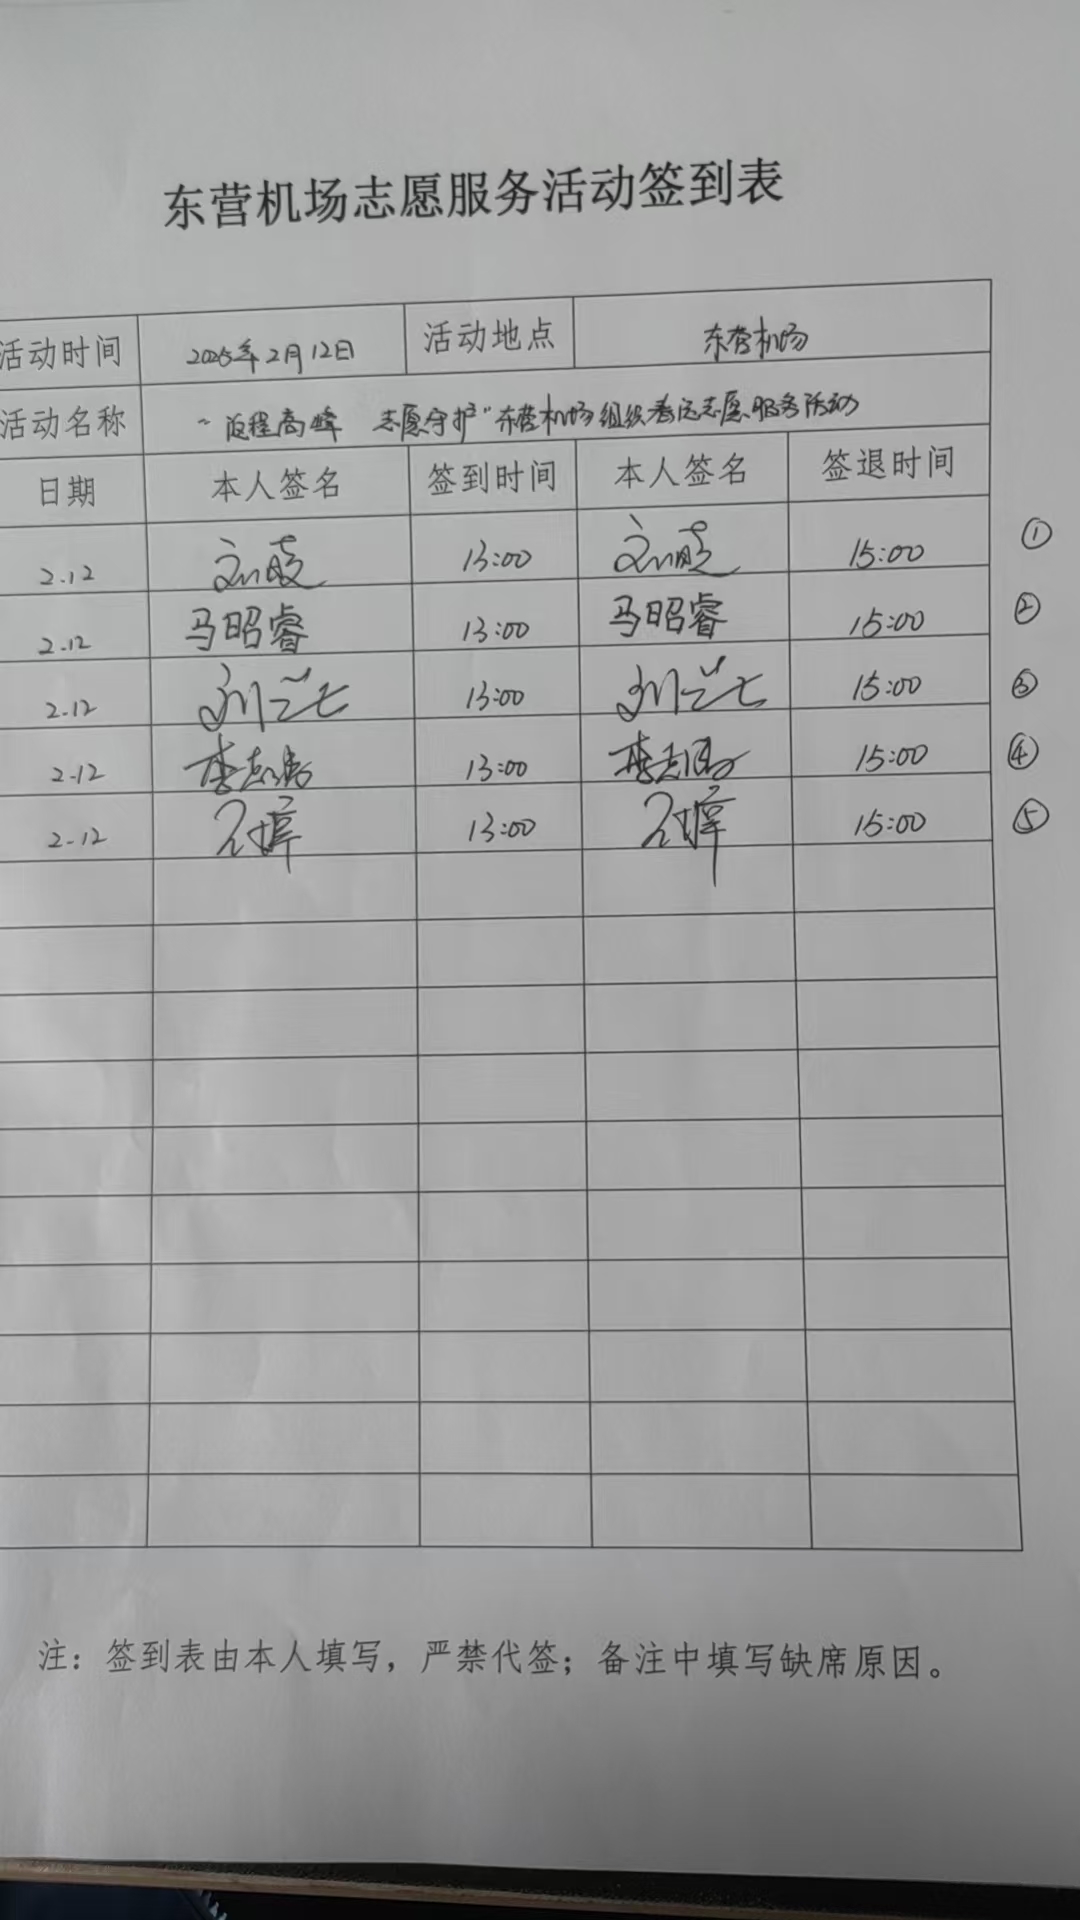 东营机场志愿服务活动签到表
活动时间 2025年2月12日 活动地点 东营机场
活动名称 "返程高峰 志愿守护"东营机场组织春运志愿服务活动
日期 本人签名 签到时间 本人签名 签退时间
2.12 13:00 15:00 ①
2.12 马昭睿 13:00 马昭睿 15:00 ②
2.12 13:00 15:00 ③
2.12 13:00 15:00 ④
2.12 13:00 15:00 ⑤
注：签到表由本人填写，严禁代签；备注中填写缺席原因。